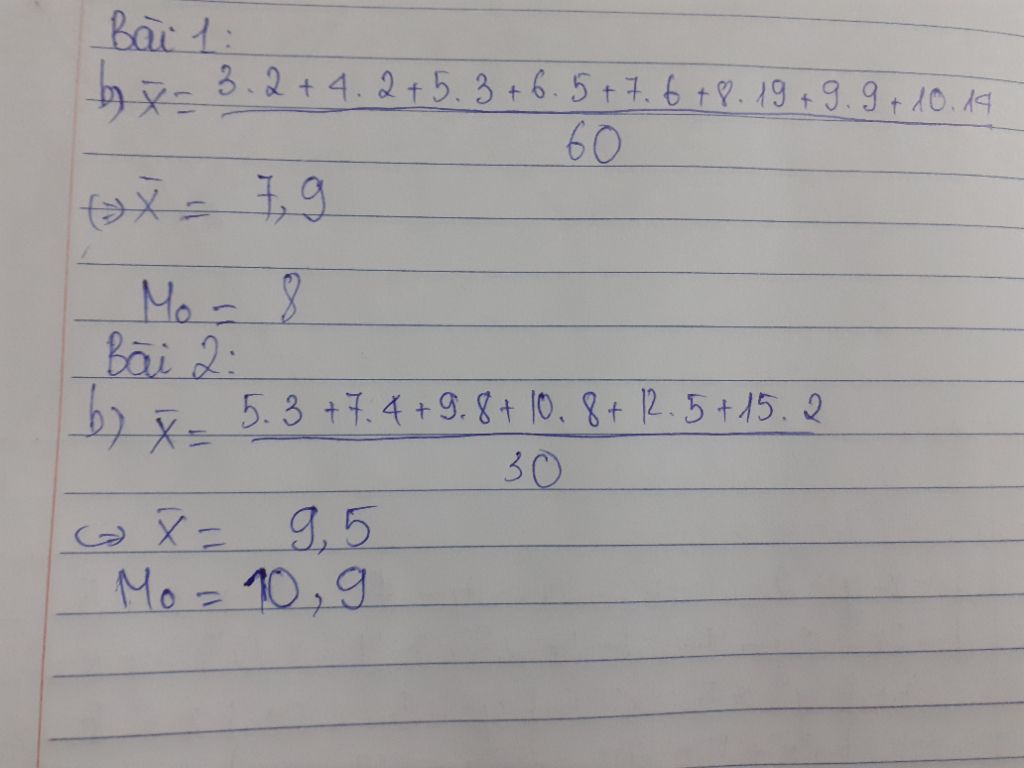 Bài 1:
b) x̄ = 3.2+4.2+5.3+6.5+7.6+8.19+9.9+10.14
60
⇔ x̄ = 7,9
Mo = 8
Bài 2:
b) x̄ = 5.3+7.4+9.8+10.8+12.5+15.2
30
⇔ x̄ = 9,5
Mo = 10,9